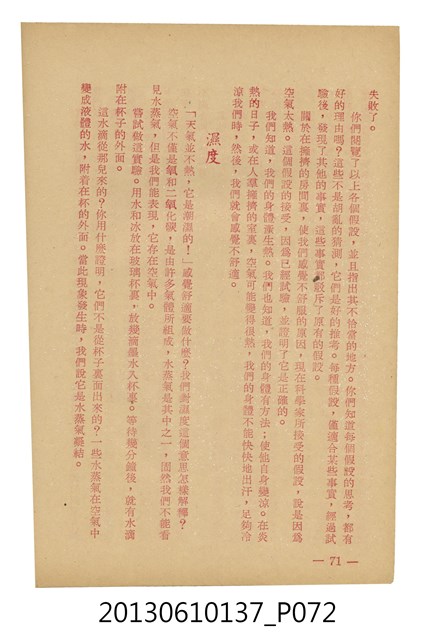 失敗了。
你們閱覽了以上各個假設，並且指出其不恰當的地方。你們知道每個假設的思考，都有
好的理由嗎？這些不是胡亂的猜測，它們是好的推考。每種假設，僅適合某些事實，經過試
驗後，發現了其他的事實，這些事實都駁斥了原有的假設。
關於在擁擠的房間裏，使我們感覺不舒服的原因，現在科學家所接受的假設，說是因爲
空氣太熱。這個假設的接受，因爲已經試驗，並證明了它是正確的。
我們知道，我們的身體產生熱。我們也知道，我們的身體有方法；使他自身變涼。在炎
熱的日子，或在人羣擁擠的室裏，空氣可能變得很熱，我們的身體不能快快地出汗，足夠冷
涼我們時，然後，我們就會感覺不舒適。
濕度
「天氣並不熱，它是潮濕的！」感覺舒適要做什麼？我們對濕度這個意思怎樣解釋？
空氣不僅是氧和二氧化碳，是由許多氣體所組成，水蒸氣是其中之一，固然我們不能看
見水蒸氣，但是我們能表現，它存在空氣中。
嘗試做這實驗。用水和冰放在玻璃杯裏，放幾滴墨水入杯裏。等待幾分鐘後，就有水滴
附在杯子的外面。
這水滴從那兒來的？你用什麼證明，它們不是從杯子裏面出來的？一些水蒸氣在空氣中
變成液體的水，附着在杯的外面。當此現象發生時，我們說它是水蒸氣凝結。
— 71 —
20130610137_P072